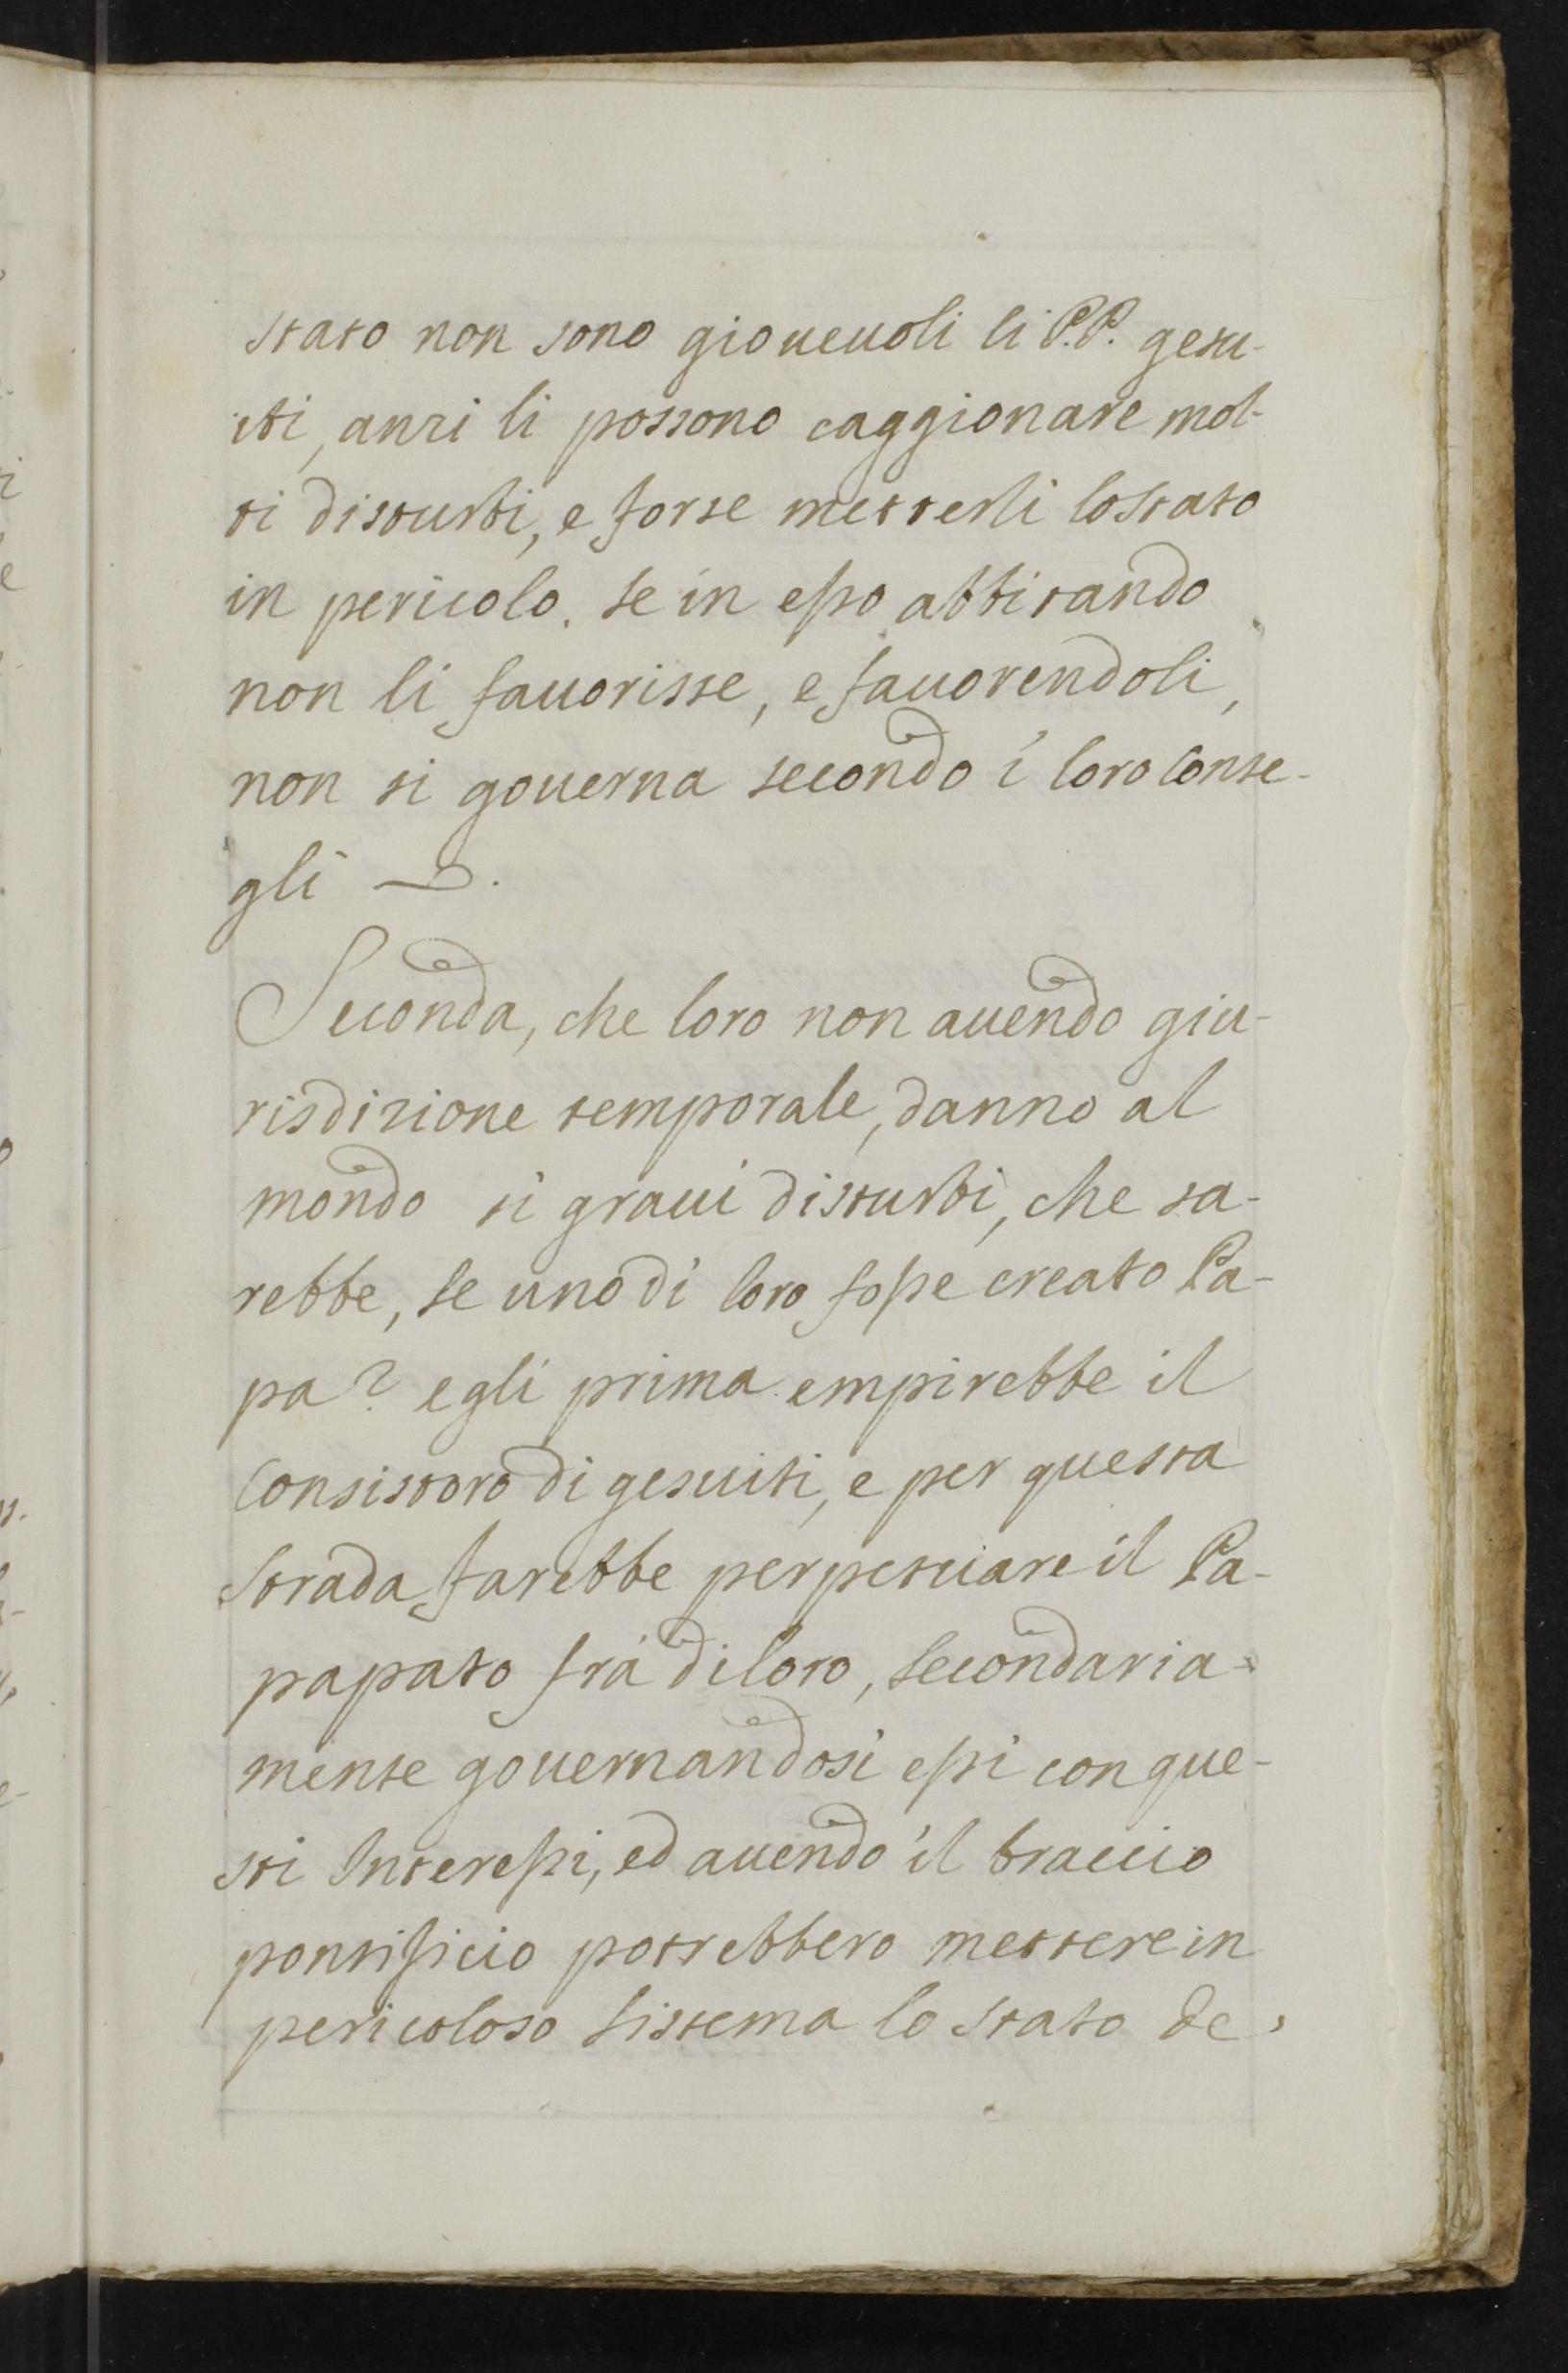 stato non sono giouevoli li P.P. gesu-
iti, anzi li possono caggionare mol-
ti disturbi, e forse metterli lo stato
in pericolo. se in esso abbitando
non li fauorisse, e fauorendoli,
non si gouerna secondo i loro Conse-
gli
Seconda, che loro non auendo giu-
risdizione temporale, danno al
mondo sì graui disturbi, che sa-
rebbe, se uno di loro fosse creato Pa-
pa? egli prima empirebbe il
Consistoro di gesuiti, e per questa
Strada farebbe perpetuare il Pa-
papato frà di loro, secondaria-
mente gouernandosi essi con que-
sti Interessi, ed auendo il braccio
pontificio potrebbero mettere in
pericoloso sistema lo Stato de'